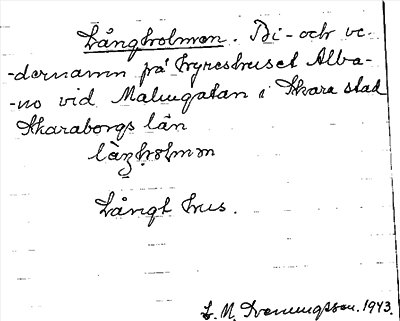 Långholmen. Bi- och ve-
-dernamn på hyreshuset Alba-
-no vid Malmgatan i Skara stad
Skaraborgs län
långholmen
Långt hus.
L. M. Svenungsson. 1943.